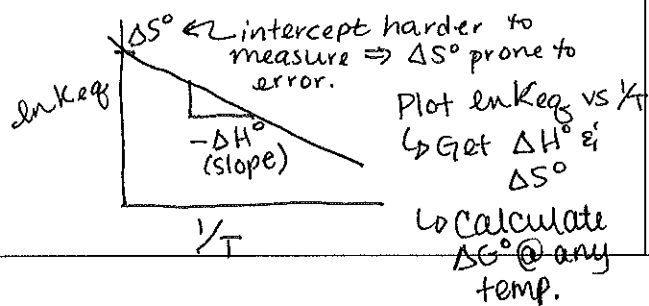 ΔS° ← intercept harder to
measure ⇒ ΔS° prone to
error.
ln Keq
-ΔH°
(slope)
1/T
Plot ln Keq vs 1/T
↳ Get ΔH° &
ΔS°
↳ Calculate
ΔG° @ any
temp.